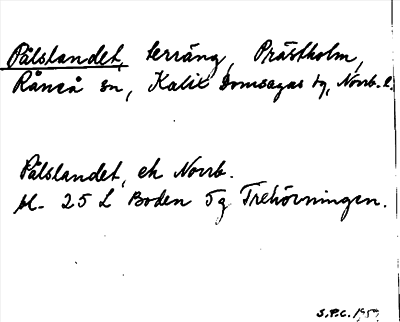 Pålslandet, terräng, Prästholm,
Råneå sn, Kalix domsagas tg, Norrb. l.
Pålslandet, ek Norrb.
bl. 25 L Boden 5g Trehörningen.
S.P.C. 1959